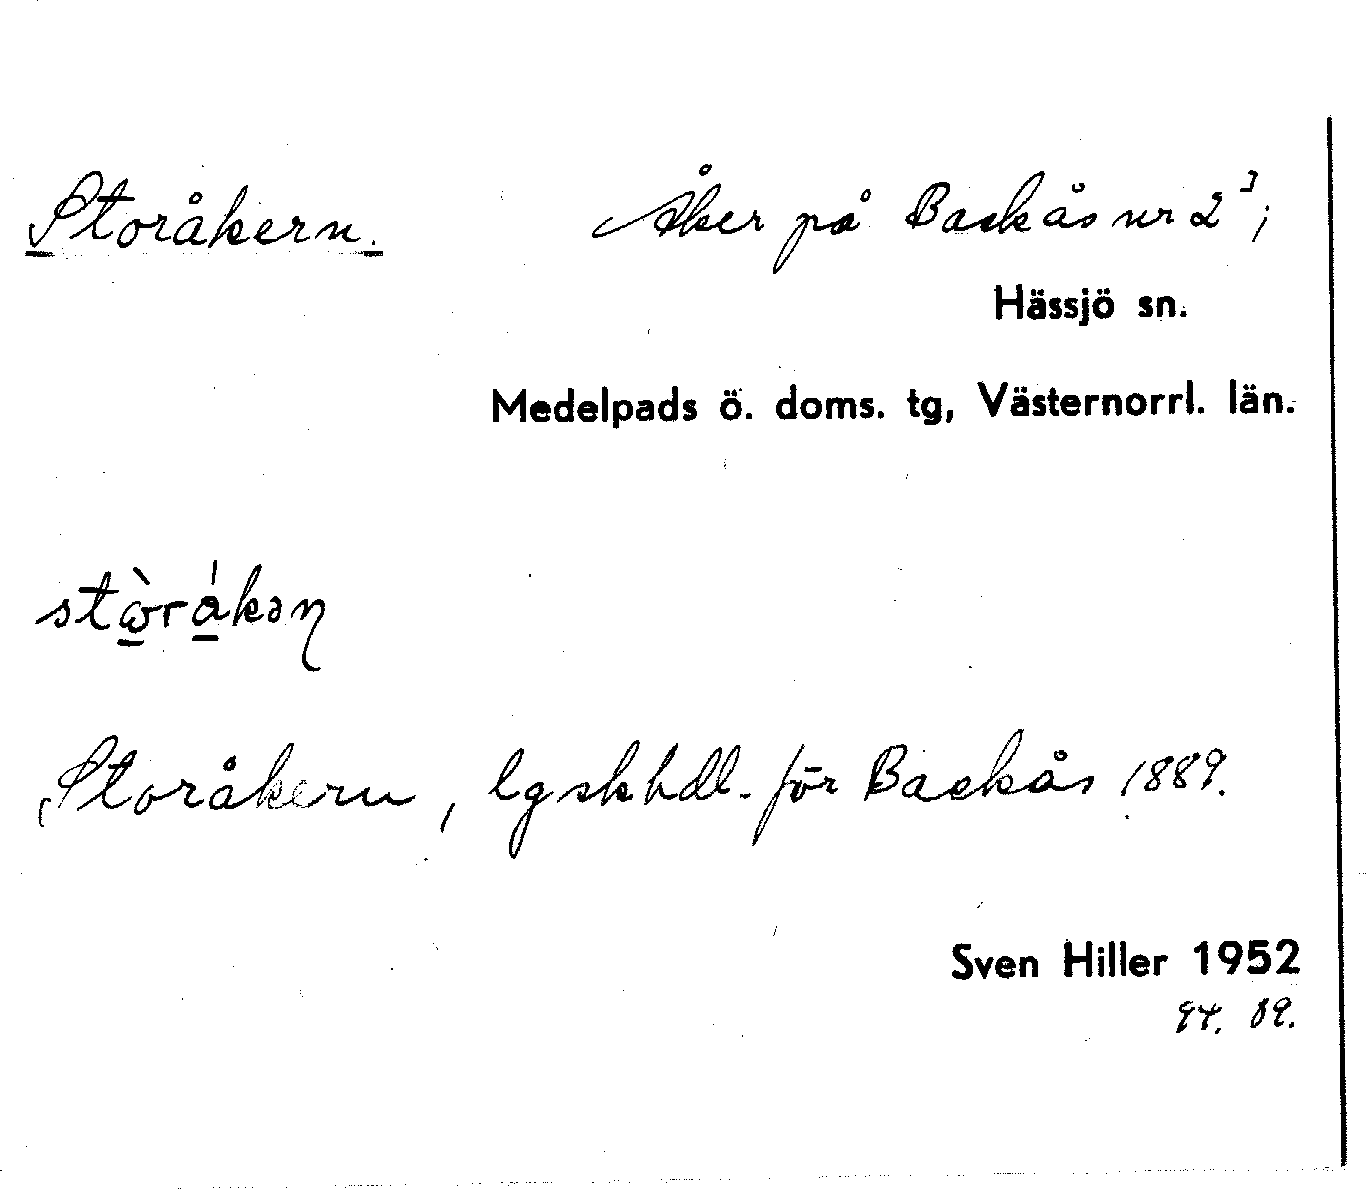 Storåkern. Åker på Backås nr 2³;
Hässjö sn.
Medelpads ö. doms. tg, Västernorrl. län.
stòrákəɳ
Storåkern, lgskhdl. för Backås 1889.
Sven Hiller 1952
89.